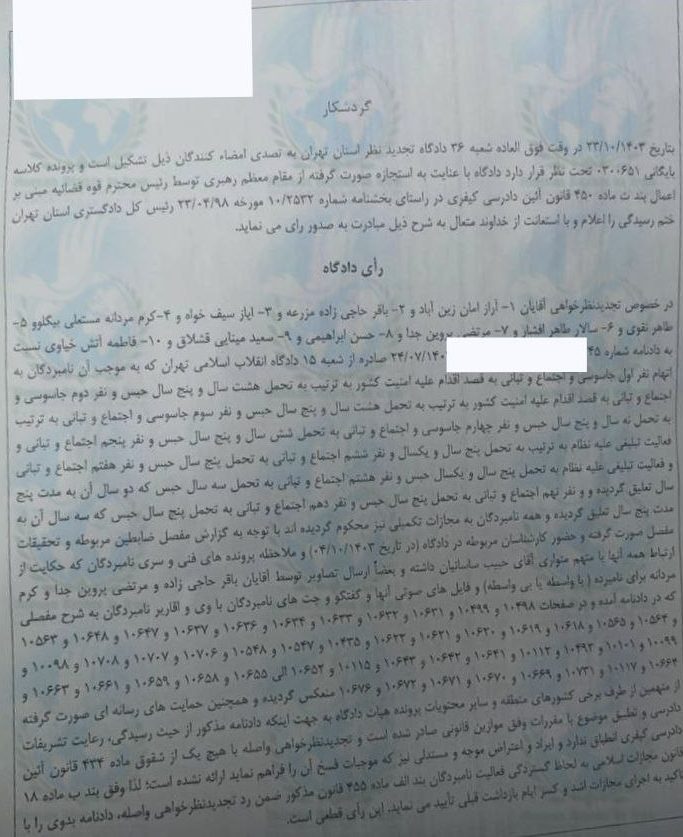 گردشکار
بتاریخ ۲۳/۱۰/۱۴۰۳ در وقت فوق العاده شعبه ۳۶ دادگاه تجدید نظر استان تهران به تصدی امضاء کنندگان ذیل تشکیل است و پرونده کلاسه
بایگانی ۰۳۰۰۶۵۱ تحت نظر قرار دارد دادگاه با عنایت به استجازه صورت گرفته از مقام معظم رهبری توسط رئیس محترم قوه قضائیه مبنی بر
اعمال بند ت ماده ۴۵۰ قانون آئین دادرسی کیفری در راستای بخشنامه شماره ۱۰/۲۵۳۲ مورخه ۲۳/۰۴/۹۸ رئیس کل دادگستری استان تهران
ختم رسیدگی را اعلام و با استعانت از خداوند متعال به شرح ذیل مبادرت به صدور رای می نماید.
رأی دادگاه
در خصوص تجدیدنظرخواهی آقایان ۱- آراز امان زین آباد و ۲- باقر حاجی زاده مزرعه و ۳- ایاز سیف خواه و ۴-کرم مردانه مستعلی بیگلوو ۵-
طاهر نقوی و ۶- سالار طاهر افشار و ۷- مرتضی پروین جدا و ۸- حسن ابراهیمی و ۹- سعید مینایی قشلاق و ۱۰- فاطمه آتش خیاوی نسبت
به دادنامه شماره ۴۵ ۲۴/۰۷/۱۴۰ صادره از شعبه ۱۵ دادگاه انقلاب اسلامی تهران که به موجب آن نامبردگان به
اتهام نفر اول جاسوسی و اجتماع و تبانی به قصد اقدام علیه امنیت کشور به ترتیب به تحمل هشت سال و پنج سال حبس و نفر دوم جاسوسی و
اجتماع و تبانی به قصد اقدام علیه امنیت کشور به ترتیب به تحمل هشت سال و پنج سال حبس و نفر سوم جاسوسی و اجتماع و تبانی به ترتیب
به تحمل نه سال و پنج سال حبس و نفر چهارم جاسوسی و اجتماع و تبانی به تحمل شش سال و پنج سال حبس و نفر پنجم اجتماع و تبانی و
فعالیت تبلیغی علیه نظام به ترتیب به تحمل پنج سال و یکسال و نفر ششم اجتماع و تبانی به تحمل پنج سال حبس و نفر هفتم اجتماع و تبانی
و فعالیت تبلیغی علیه نظام به تحمل پنج سال و یکسال حبس و نفر هشتم اجتماع و تبانی به تحمل سه سال حبس که دو سال آن به مدت پنج
سال تعلیق گردیده و و نفر نهم اجتماع و تبانی به تحمل پنج سال حبس و نفر دهم اجتماع و تبانی به تحمل پنج سال حبس که سه سال آن به
مدت پنج سال تعلیق گردیده و همه نامبردگان به مجازات تکمیلی نیز محکوم گردیده اند با توجه به گزارش مفصل ضابطین مربوطه و تحقیقات
مفصل صورت گرفته و حضور کارشناسان مربوطه در دادگاه (در تاریخ ۰۴/۱۰/۱۴۰۳) و ملاحظه پرونده های فنی و سری نامبردگان که حکایت از
ارتباط همه آنها با متهم متواری آقای حبیب ساسانیان داشته و بعضاً ارسال تصاویر توسط آقایان باقر حاجی زاده و مرتضی پروین جدا و کرم
مردانه برای نامبرده ( با واسطه یا بی واسطه) و فایل های صوتی آنها و گفتگو و چت های نامبردگان با وی و اقاریر نامبردگان به شرح مفصلی
که در دادنامه آمده و در صفحات ۱۰۴۹۸ و ۱۰۴۹۹ و ۱۰۶۳۱ و ۱۰۶۳۲ و ۱۰۶۳۳ و ۱۰۶۳۴ و ۱۰۶۳۶ و ۱۰۶۳۷ و ۱۰۶۴۷ و ۱۰۶۴۸ و ۱۰۵۶۳
و ۱۰۵۶۴ و ۱۰۵۶۵ و ۱۰۶۱۸ و ۱۰۶۱۹ و ۱۰۶۲۰ و ۱۰۶۲۱ و ۱۰۶۲۲ و ۱۰۴۳۵ و ۱۰۵۴۷ و ۱۰۵۴۸ و ۱۰۷۰۶ و ۱۰۷۰۷ و ۱۰۷۰۸ و ۱۰۰۹۸ و
۱۰۰۹۹ و ۱۰۱۰۱ و ۱۰۴۹۲ و ۱۰۱۱۲ و ۱۰۶۴۱ و ۱۰۶۴۲ و ۱۰۶۴۳ و ۱۰۱۱۵ و ۱۰۶۵۲ الی ۱۰۶۵۵ و ۱۰۶۵۸ و ۱۰۶۵۹ و ۱۰۶۶۱ و ۱۰۶۶۳ و
۱۰۶۶۴ و ۱۰۱۱۷ و ۱۰۷۳۱ و ۱۰۶۶۹ و ۱۰۶۷۰ و ۱۰۶۷۱ و ۱۰۶۷۲ و ۱۰۶۷۶ منعکس گردیده و همچنین حمایت های رسانه ای صورت گرفته
از متهمین از طرف برخی کشورهای منطقه و سایر محتویات پرونده هیات دادگاه به جهت اینکه دادنامه مذکور از حیث رسیدگی، رعایت تشریفات
دادرسی و تطبیق موضوع با مقررات وفق موازین قانونی صادر شده است و تجدیدنظرخواهی واصله با هیچ یک از شقوق ماده ۴۳۴ قانون آئین
دادرسی کیفری انطباق ندارد و ایراد و اعتراض موجه و مستدلی نیز که موجبات فسخ آن را فراهم نماید ارائه نشده است؛ لذا وفق بند ب ماده ۱۸
قانون مجازات اسلامی به لحاظ گستردگی فعالیت نامبردگان بند الف ماده ۴۵۵ قانون مذکور ضمن رد تجدیدنظرخواهی واصله، دادنامه بدوی را با
تاکید به اجرای مجازات اشد و کسر ایام بازداشت قبلی تأیید می نماید. این رأی قطعی است.